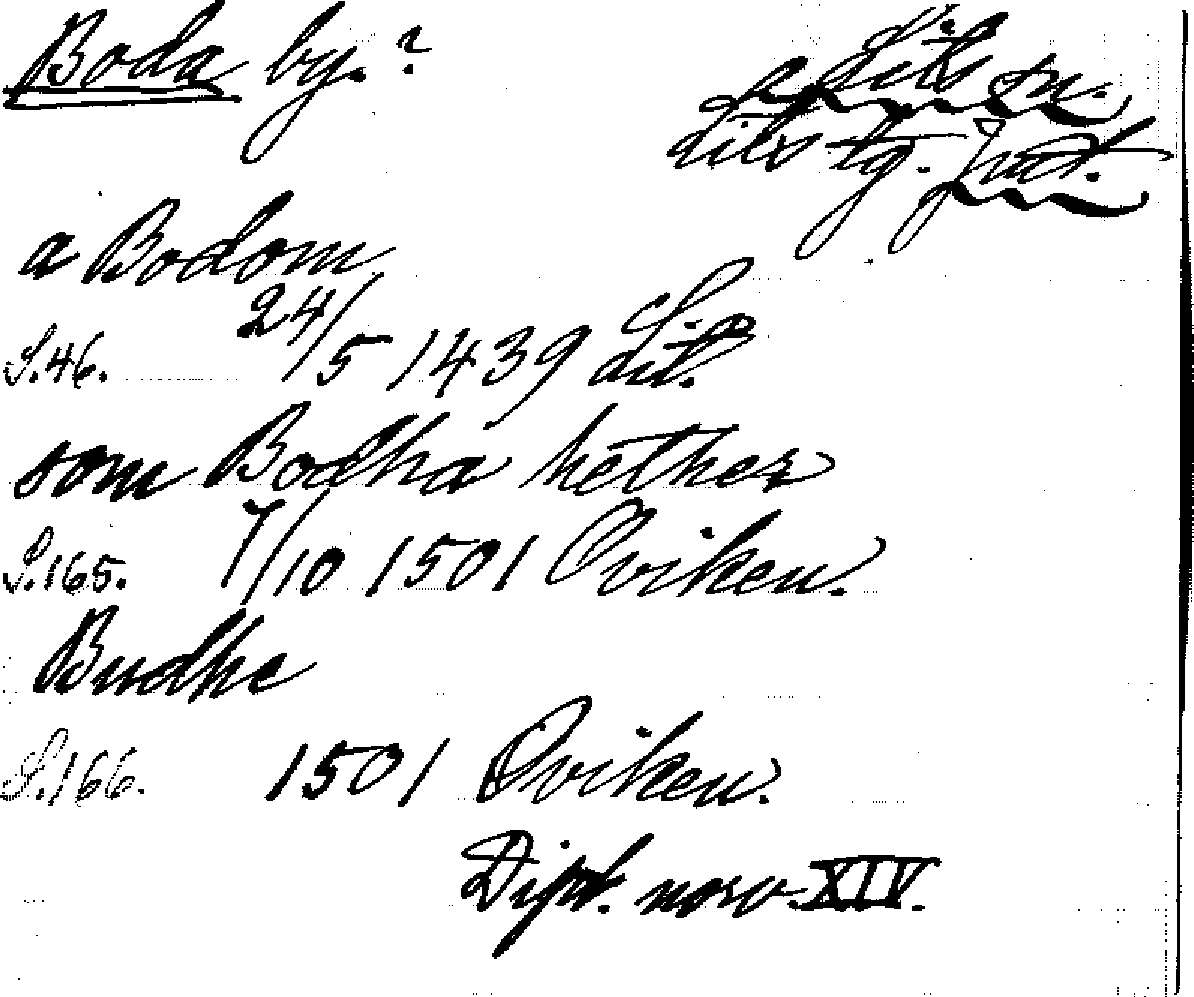 Boda by.?
Lits sn.
Lits tg. Jmt.
a Bodom
S.46. 24/5 1439 Lit.
som Bodha hether
S.165. 7/10 1501 Oviken.
Budhe
S.166. 1501 Oviken.
Dipl. norv. XIV.